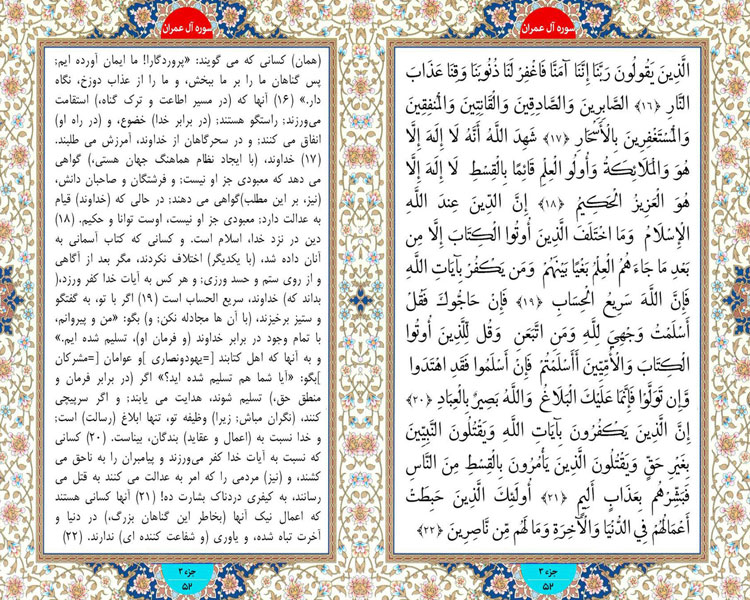 سوره آل عمران
الَّذِينَ يَقُولُونَ رَبَّنَا إِنَّنَا آمَنَّا فَاغْفِرْ لَنَا ذُنُوبَنَا وَقِنَا عَذَابَ
النَّارِ ﴿۱۶﴾ الصَّابِرِينَ وَالصَّادِقِينَ وَالْقَانِتِينَ وَالْمُنْفِقِينَ
وَالْمُسْتَغْفِرِينَ بِالْأَسْحَارِ ﴿۱۷﴾ شَهِدَ اللَّهُ أَنَّهُ لَا إِلَهَ إِلَّا
هُوَ وَالْمَلَائِكَةُ وَأُولُو الْعِلْمِ قَائِمًا بِالْقِسْطِ لَا إِلَهَ إِلَّا
هُوَ الْعَزِيزُ الْحَكِيمُ ﴿۱۸﴾ إِنَّ الدِّينَ عِنْدَ اللَّهِ
الْإِسْلَامُ وَمَا اخْتَلَفَ الَّذِينَ أُوتُوا الْكِتَابَ إِلَّا مِنْ
بَعْدِ مَا جَاءَهُمُ الْعِلْمُ بَغْيًا بَيْنَهُمْ وَمَنْ يَكْفُرْ بِآيَاتِ اللَّهِ
فَإِنَّ اللَّهَ سَرِيعُ الْحِسَابِ ﴿۱۹﴾ فَإِنْ حَاجُّوكَ فَقُلْ
أَسْلَمْتُ وَجْهِيَ لِلَّهِ وَمَنِ اتَّبَعَنِ وَقُلْ لِلَّذِينَ أُوتُوا
الْكِتَابَ وَالْأُمِّيِّينَ أَأَسْلَمْتُمْ فَإِنْ أَسْلَمُوا فَقَدِ اهْتَدَوْا
وَإِنْ تَوَلَّوْا فَإِنَّمَا عَلَيْكَ الْبَلَاغُ وَاللَّهُ بَصِيرٌ بِالْعِبَادِ ﴿۲۰﴾
إِنَّ الَّذِينَ يَكْفُرُونَ بِآيَاتِ اللَّهِ وَيَقْتُلُونَ النَّبِيِّينَ
بِغَيْرِ حَقٍّ وَيَقْتُلُونَ الَّذِينَ يَأْمُرُونَ بِالْقِسْطِ مِنَ النَّاسِ
فَبَشِّرْهُمْ بِعَذَابٍ أَلِيمٍ ﴿۲۱﴾ أُولَئِكَ الَّذِينَ حَبِطَتْ
أَعْمَالُهُمْ فِي الدُّنْيَا وَالْآخِرَةِ وَمَا لَهُمْ مِنْ نَاصِرِينَ ﴿۲۲﴾
جزء ۳
۵۲
سوره آل عمران
(همان) کسانی که می گویند: «پروردگارا! ما ایمان آورده ایم;
پس گناهان ما را بر ما ببخش، و ما را از عذاب دوزخ، نگاه
دار.» (۱۶) آنها که (در مسیر اطاعت و ترک گناه،) استقامت
می‌ورزند; راستگو هستند; (در برابر خدا) خضوع، و (در راه او)
انفاق می کنند; و در سحرگاهان از خداوند، آمرزش می طلبند.
(۱۷) خداوند، (با ایجاد نظام هماهنگ جهان هستی،) گواهی
می دهد که معبودی جز او نیست; و فرشتگان و صاحبان دانش،
(نیز، بر این مطلب)گواهی می دهند; در حالی که (خداوند) قیام
به عدالت دارد; معبودی جز او نیست، اوست توانا و حکیم. (۱۸)
دین در نزد خدا، اسلام است. و کسانی که کتاب آسمانی به
آنان داده شد، (با یکدیگر) اختلاف نکردند، مگر بعد از آگاهی
و از روی ستم و حسد ورزی; و هر کس به آیات خدا کفر ورزد،(
بداند که) خداوند، سریع الحساب است (۱۹) اگر با تو، به گفتگو
و ستیز برخیزند، (با آن ها مجادله نکن; و) بگو: «من و پیروانم،
با تمام وجود در برابر خداوند (و فرمان او)، تسلیم شده ایم.»
و به آنها که اهل کتابند [=یهودونصاری ]و عوامان [=مشرکان
]بگو: «آیا شما هم تسلیم شده اید؟» اگر (در برابر فرمان و
منطق حق،) تسلیم شوند، هدایت می یابند; و اگر سرپیچی
کنند، (نگران مباش; زیرا) وظیفه تو، تنها ابلاغ (رسالت) است;
و خدا نسبت به (اعمال و عقاید) بندگان، بیناست. (۲۰) کسانی
که نسبت به آیات خدا کفر می‌ورزند و پیامبران را به ناحق می
کشند، و (نیز) مردمی را که امر به عدالت می کنند به قتل می
رسانند، به کیفری دردناک بشارت ده! (۲۱) آنها کسانی هستند
که اعمال نیک آنها (بخاطر این گناهان بزرگ،) در دنیا و
آخرت تباه شده، و یاوری (و شفاعت کننده ای) ندارند. (۲۲)
جزء ۳
۵۲